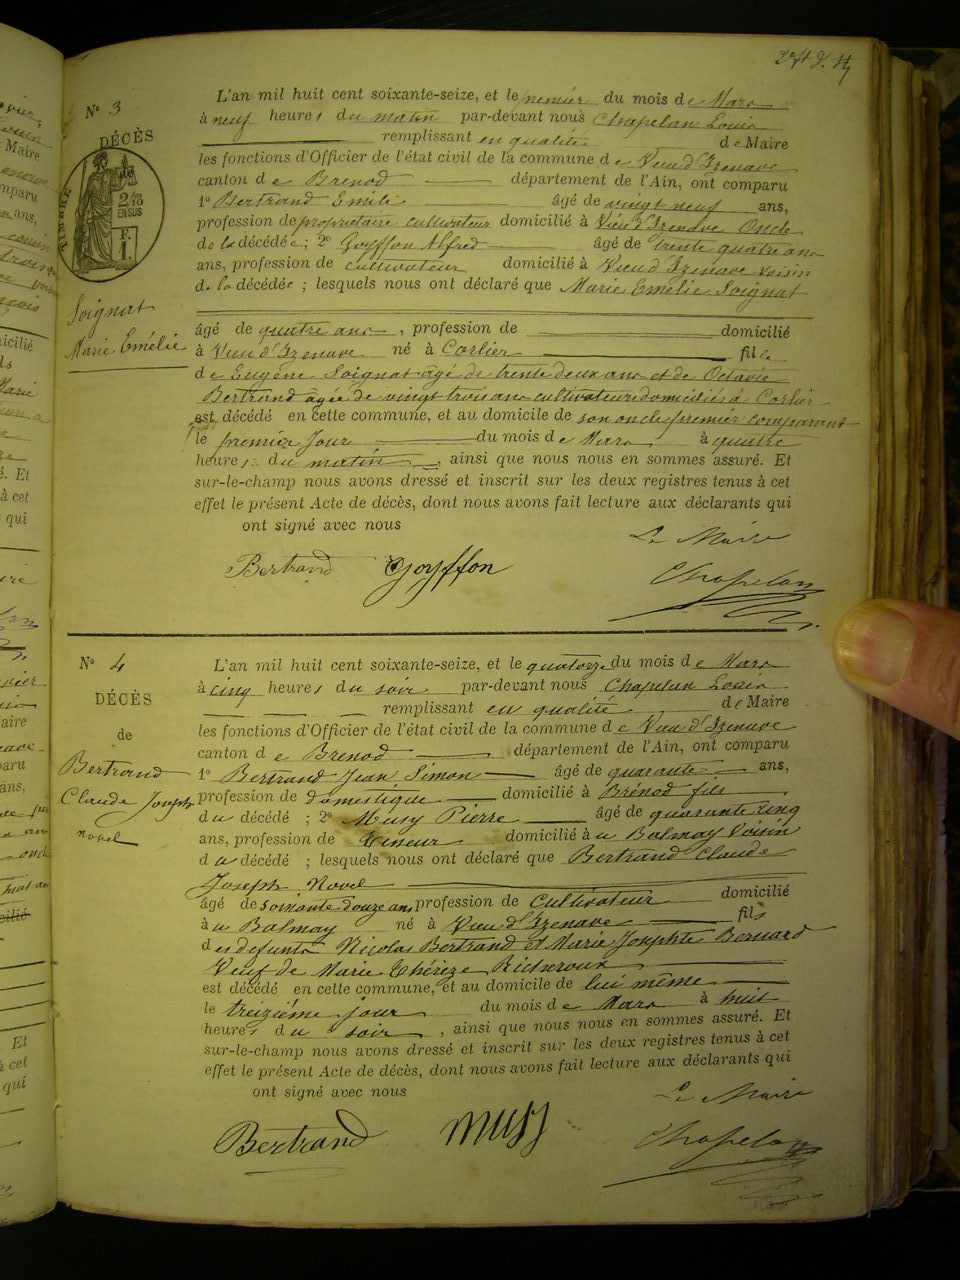 N° 3
DÉCÈS
TIMBRE
2/10
EN SUS
F.
1.
Soignat
Marie Emélie
L'an mil huit cent soixante-seize, et le premier du mois de Mars
à neuf heures du matin par-devant nous Chapelan Louis
remplissant en qualité de Maire
les fonctions d'Officier de l'état civil de la commune de Vieu d'Izenave
canton de Brenod département de l'Ain, ont comparu
1° Bertrand Emile âgé de vingt neuf ans,
profession de propriétaire cultivateur domicilié à Vieu d'Izenave Oncle
de la décédée ; 2° Goyffon Alfred âgé de trente quatre ans
ans, profession de cultivateur domicilié à Vieu d'Izenave voisin
de la décédée ; lesquels nous ont déclaré que Marie Emélie Soignat
âgé de quatre ans, profession de domicilié
à Vieu d'Izenave né à Corlier fille
de Eugène Soignat âgé de trente deux ans et de Octavie
Bertrand âgée de vingt trois ans cultivateurs domiciliés à Corlier
est décédé en cette commune, et au domicile de son oncle premier comparant
le premier Jour du mois de Mars à quatre
heures du matin, ainsi que nous nous en sommes assuré. Et
sur-le-champ nous avons dressé et inscrit sur les deux registres tenus à cet
effet le présent Acte de décès, dont nous avons fait lecture aux déclarants qui
ont signé avec nous
Le Maire
Bertrand Goyffon Chapelan
N° 4
DÉCÈS
de
Bertrand
Claude Joseph
novel
L'an mil huit cent soixante-seize, et le quatorze du mois de Mars
à cinq heures du soir par-devant nous Chapelan Louis
remplissant en qualité de Maire
les fonctions d'Officier de l'état civil de la commune de Vieu d'Izenave
canton de Brenod département de l'Ain, ont comparu
1° Bertrand Jean Simon âgé de quarante ans,
profession de domestique domicilié à Brénod fils
du décédé ; 2° Musy Pierre âgé de quarante cinq
ans, profession de domicilié à u Balmay Voisin
du décédé ; lesquels nous ont déclaré que Bertrand Claude
Joseph Novel
âgé de soixante douze ans profession de Cultivateur domicilié
à u Balmay né à Vieu d'Izenave fils
des defunts Nicolas Bertrand et Marie Josephte Bernard
Veuf de Marie Thérèze
est décédé en cette commune, et au domicile de lui même
le treizième jour du mois de Mars à huit
heures du soir, ainsi que nous nous en sommes assuré. Et
sur-le-champ nous avons dressé et inscrit sur les deux registres tenus à cet
effet le présent Acte de décès, dont nous avons fait lecture aux déclarants qui
ont signé avec nous
Le Maire
Bertrand Musy Chapelan